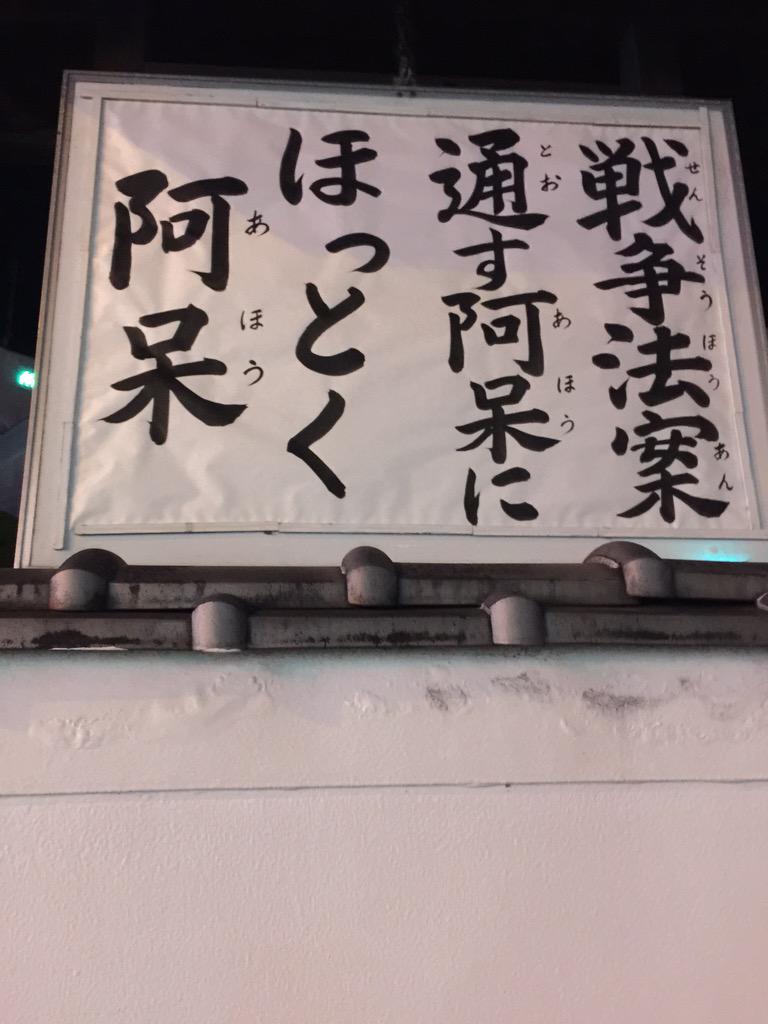 戦争法案
通す阿呆に
ほっとく
阿呆
せん そう ほう あん
とお あ ほう
あ ほう